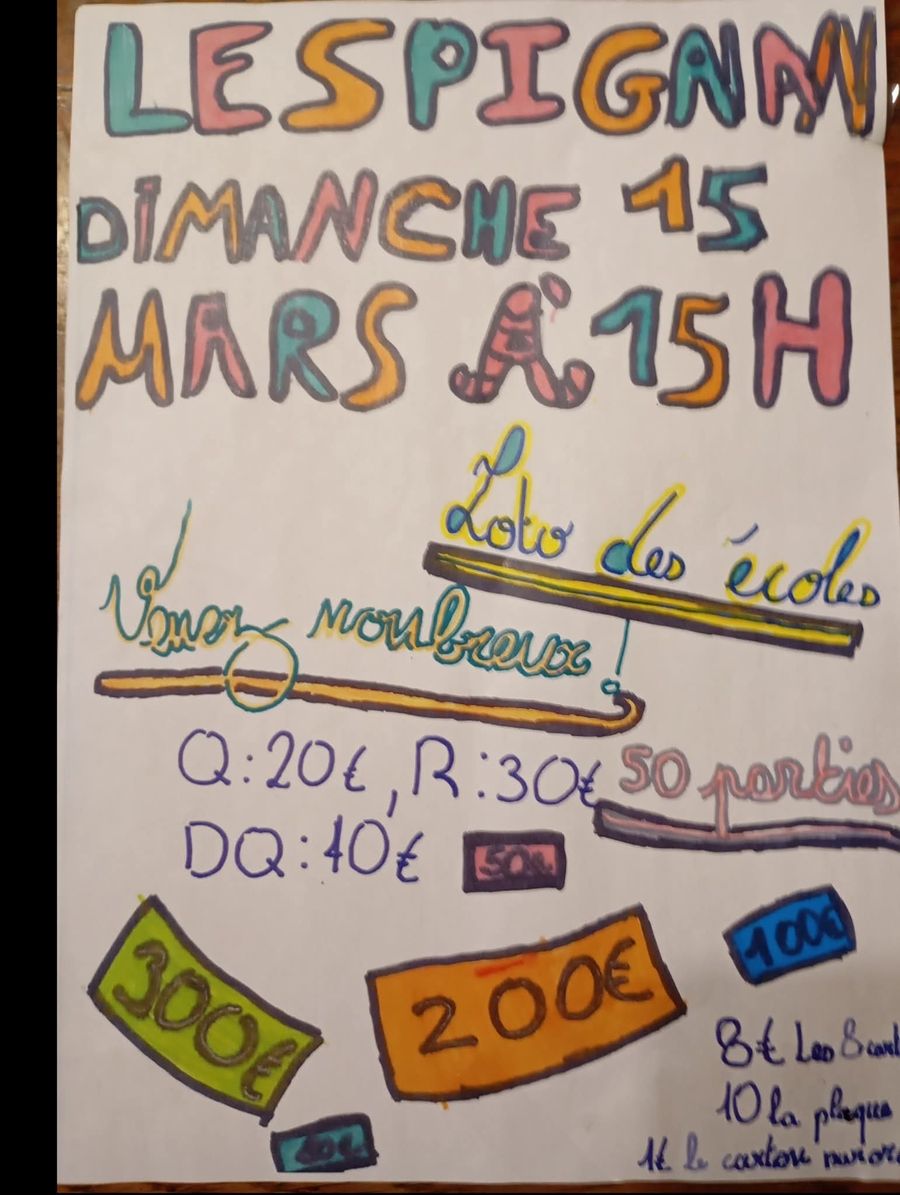 LESPIGNAN
DIMANCHE 15
MARS À 15H
Loto des écoles
Venez nombreux
Q:20€, R:30€
50 parties
DQ:40€
50€
300€
200€
100€
8€ Les 8 cart
10 la plaque
1€ le carton